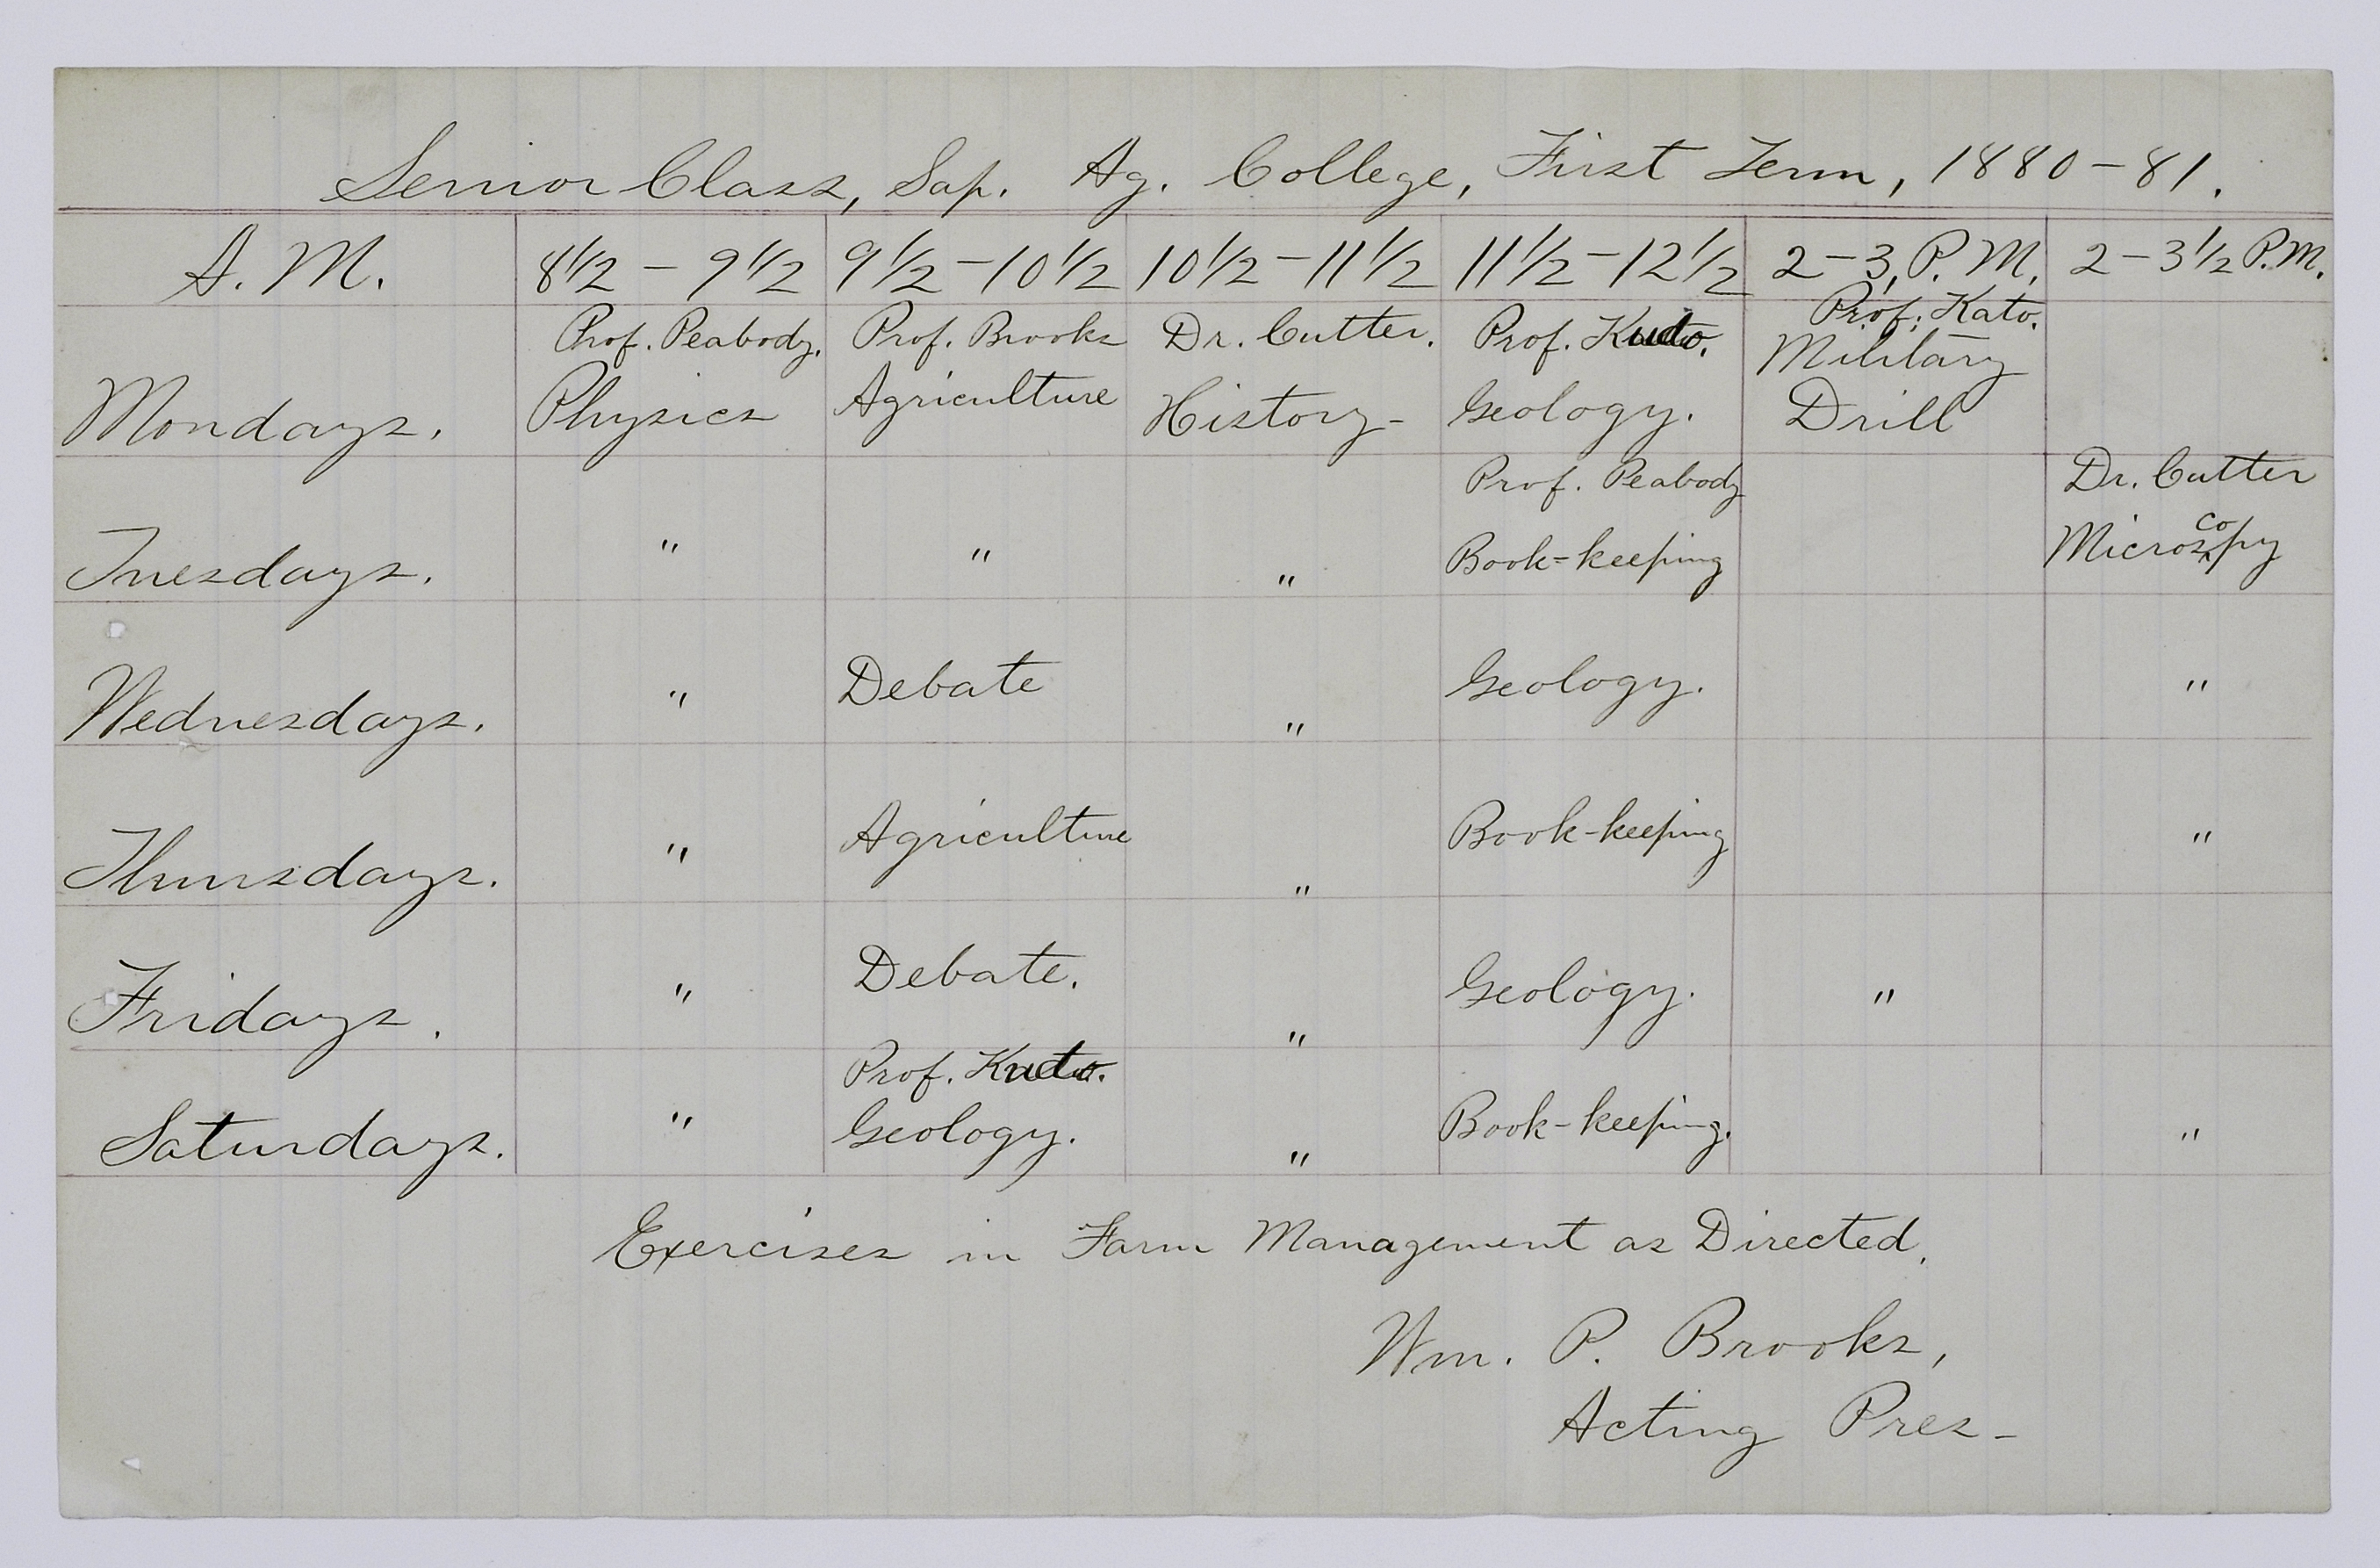 Senior Class, Sap. Ag. College, First Term, 1880-81.
A. M. 8 1/2 - 9 1/2 9 1/2 - 10 1/2 10 1/2 - 11 1/2 11 1/2 - 12 1/2 2 - 3, P. M. 2 - 3 1/2 P. M.
Prof. Peabody. Prof. Brooks Dr. Cutter. Prof. Kudo. Prof. Kato.
Mondays. Physics Agriculture History- Geology. Military Drill
Prof. Peabody Dr. Cutter
Tuesdays. " " " Book-keeping Microscopy
Wednesdays. " Debate " Geology. "
Thursdays. " Agriculture " Book-keeping "
Fridays. " Debate. " Geology. "
Prof. Kudo.
Saturdays. " Geology. " Book-keeping. "
Exercises in Farm Management as Directed.
Wm. P. Brooks,
Acting Pres-